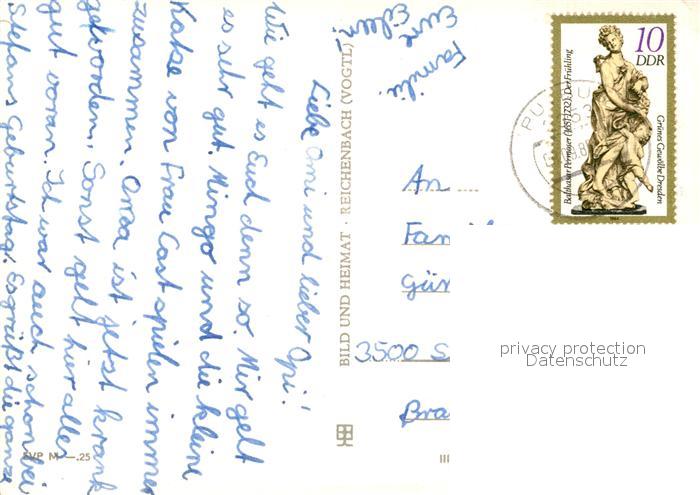 Liebe Omi und lieber Opi!
Wie geht es Euch denn so. Mir geht
es sehr gut. Mingo und die kleine
Katze von Frau Cast spielen immer
zusammen. Oma ist jetzt krank
geworden, Sonst geht hier alles
gut voran. Ich war auch schon bei
Stefans Geburtstag. Es grüßt die ganze
Familie.
Eure
EVP M —.25
BILD UND HEIMAT · REICHENBACH (VOGTL)
III
An
Fam
Gün
3500 S
Bra
10
DDR
Balthasar Permoser (1651-1732), Der Frühling
Grünes Gewölbe Dresden
1984
privacy protection
Datenschutz